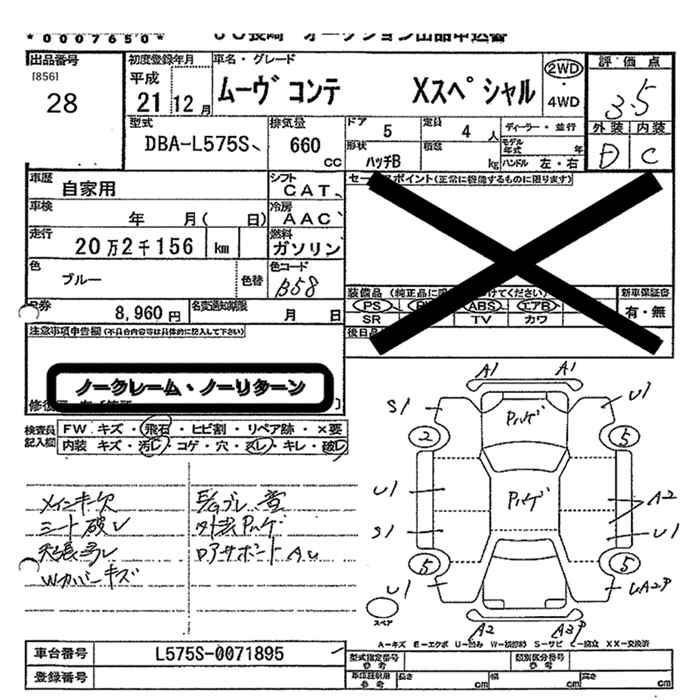 *0007650*
JU長崎 オークション出品申込書
出品番号
[856]
28
初度登録年月
平成
21 12月
車名・グレード
ムーヴ コンテ Xスペシャル
2WD
・
4WD
評価点
3.5
外装 内装
D C
型式
DBA-L575S、
排気量
660
cc
ドア 5
定員 4 人
ディーラー・並行
形状
ハッチB
積載
kg
モデル年式 年
ハンドル 左・右
車歴
自家用
シフト
CAT、
車検
年 月( 日)
冷房
AAC、
走行
20万2千156 km
燃料
ガソリン
色
ブルー
色替
色コード
B58
セールスポイント(正常に機能するものに限ります)
R券
8,960円
名変通知期限
月 日
装備品
PS ABS エアB
SR TV カワ
新車保証書
有・無
注意事項申告欄(不具合内容等は具体的に記入して下さい)
ノークレーム・ノーリターン
検査員記入欄
FW キズ・飛石・ヒビ割・リペア跡・×要
内装 キズ・汚レ・コゲ・穴・スレ・キレ・破レ
メインキー欠
シート破レ
天張ヨゴレ
Wカバーキズ
外装Pハゲ
ドアサポートAU
A1 A1
S1 U1
Pハゲ
2 5
U1 Pハゲ A2
S1 U1
5 5
U1 UA2P
スペア
A2 A3P
A=キズ E=エクボ U=凹み W=補修跡 S=サビ C=腐食 XX=交換済
車台番号
L575S-0071895
登録番号
型式指定番号
参考
類別区分番号
参考
車検証記載用
参考
長さ cm
幅 cm
高さ cm